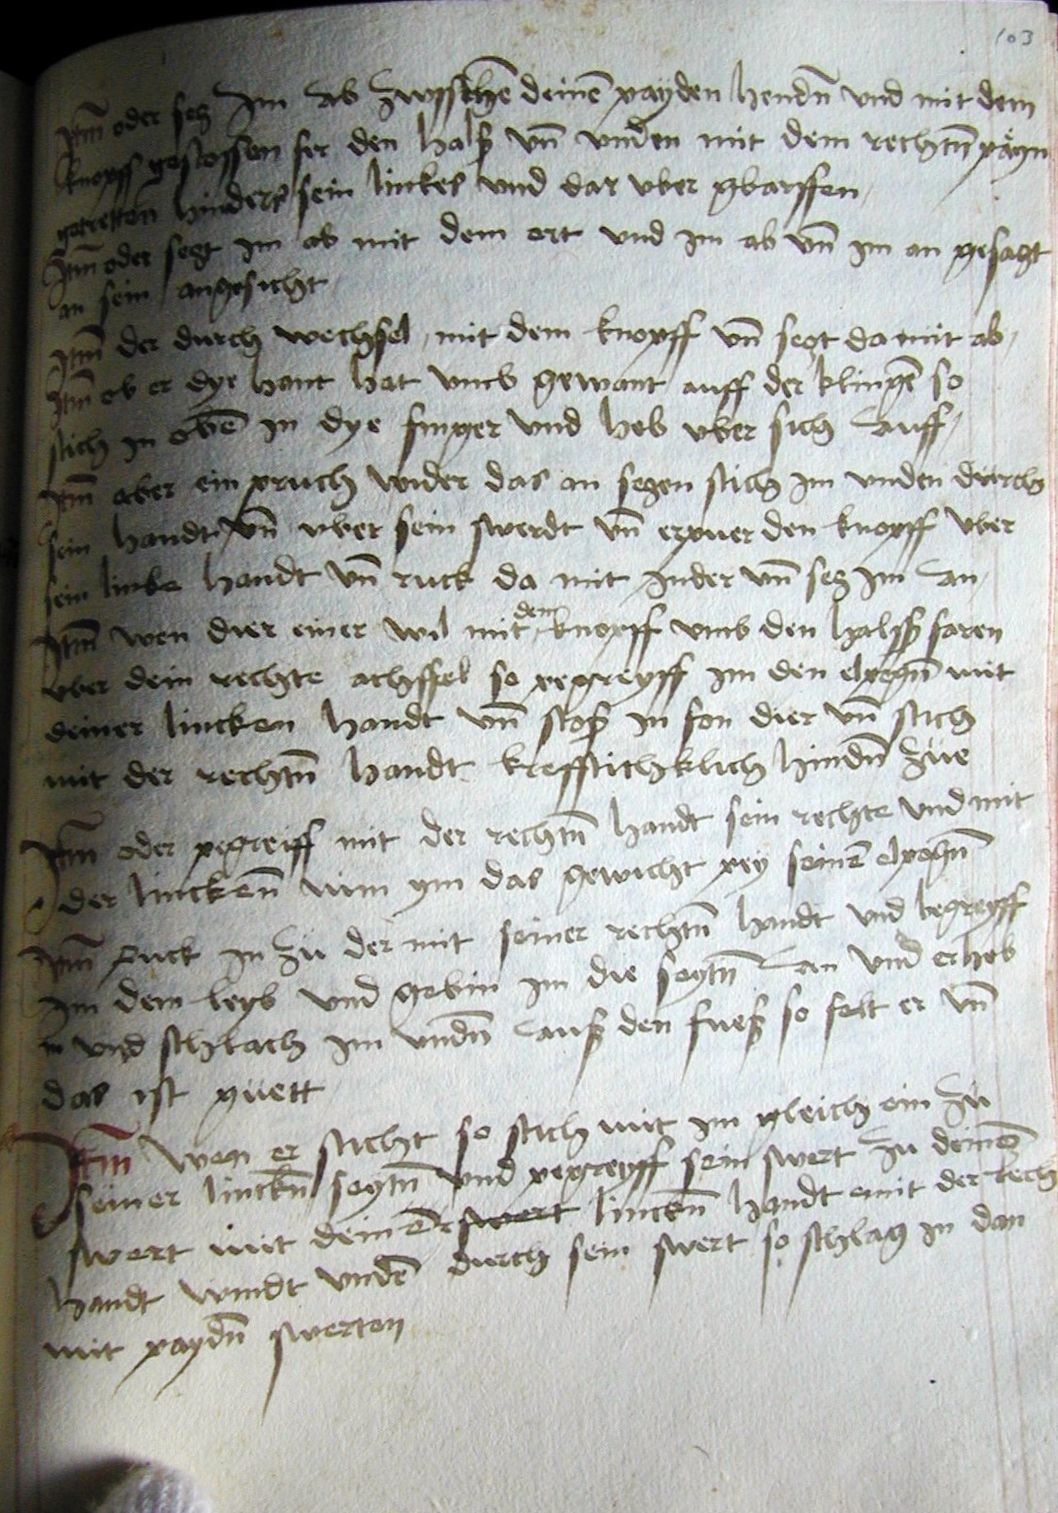 103
Itm̄ oder secz Im ab zwysthē deinē payden hendn̄ vnd mit dem
knopff gestossen fer den halß vn̄ vnden mit dem rechtn̄ päyn
getretten hinders sein linckes vnd dar vber gbarffen
Itm̄ oder sect im ab mit dem ort vnd im ab vn̄ im an gesaczt
an sein angesicht
Itm̄ der durch wechsel mit dem knopff vn̄ sect da mit ab
Itm̄ ob er dye hant hat vmb gewant auff der klingē so
stich in obē in dye finger vnd heb vber sich auff
Itm̄ aber ein pruch wider das an seczen stich im vnden durch
sein handt vn̄ vber sein swerdt vn̄ erpuer den knopff vber
sein linke handt vn̄ ruck da mit inder vn̄ secz im an
Itm̄ wen dier einer wil mit dem knopff vmb den halsß faren
vber dein rechte achssel so pegreyff im den elpogn̄ mit
deiner lincken handt vn̄ stoß in fon dier vn̄ stich
mit der rechtn̄ handt krefftichklich hindn̄ züe
Itm̄ oder pegreiff mit der rechtn̄ handt sein rechte vnd mit
der linckenn̄ nim ym das gewicht pey seinē elpogn̄
Itm̄ ruck in zü der mit seiner rechtn̄ handt vnd begreyff
im dem leyb vnd gebin im die seytn̄ an vnd erheb
in vnd schlach im vndn̄ auß den fueß so felt er vn̄
das ist güett
Itm̄ wen er sticht so stich mit im gleich ein zü
seiner linckn̄ seytn̄ vnd pegreyff sein swert zu deinē
swert mit deiner swert linckn̄ handt mit der rech
handt windt vndē durch sein swert so schlag in dan
mit paydn̄ swerten